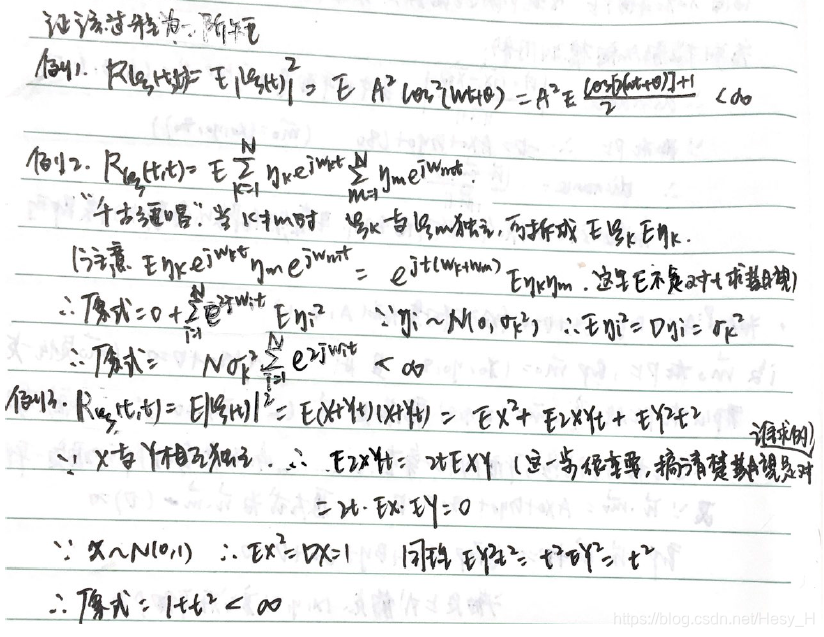 证该过程为二阶矩
例1. Rξ(t,t)=E|ξ(t)|²= E A²cos²(wt+θ) = A²E (cos[2(wt+θ)]+1)/2 <∞
例2. Rξ(t,t)= E Σ_{k=1}^{N} η_k e^{jw_kt} Σ_{m=1}^{N} η_m e^{jw_mt}.
当 k≠m时 ξ_k 与 ξ_m独立, 可拆成 Eξ_k Eη_k.
(注意 Eη_k e^{jw_kt} η_m e^{jw_mt} = e^{jt(w_k+w_m)} Eη_kη_m . 这里E不是对t求数学期望)
∴ 原式=0+ Σ_{i=1}^{N} e^{2jw_it} Eη_i² ∵ η_i ~ N(0,σ_k²) ∴ Eη_i²=Dη_i=σ_k²
∴ 原式= Nσ_k² Σ_{i=1}^{N} e^{2jw_it} < ∞
例3. Rξ(t,t)= E|ξ(t)|² E(X+Yt)(X+Yt) = EX²+E2XYt + EY²t²
∵ X与Y相互独立 ∴ E2XYt= 2tEXY (这步很重要, 搞清楚数学期望是对谁求的)
= 2t·EX·EY=0
∵ X~N(0,1) ∴ EX²=DX=1 同理 EY²t²= t²EY²= t²
∴ 原式= 1+t² < ∞
https://blog.csdn.net/Hesy_H